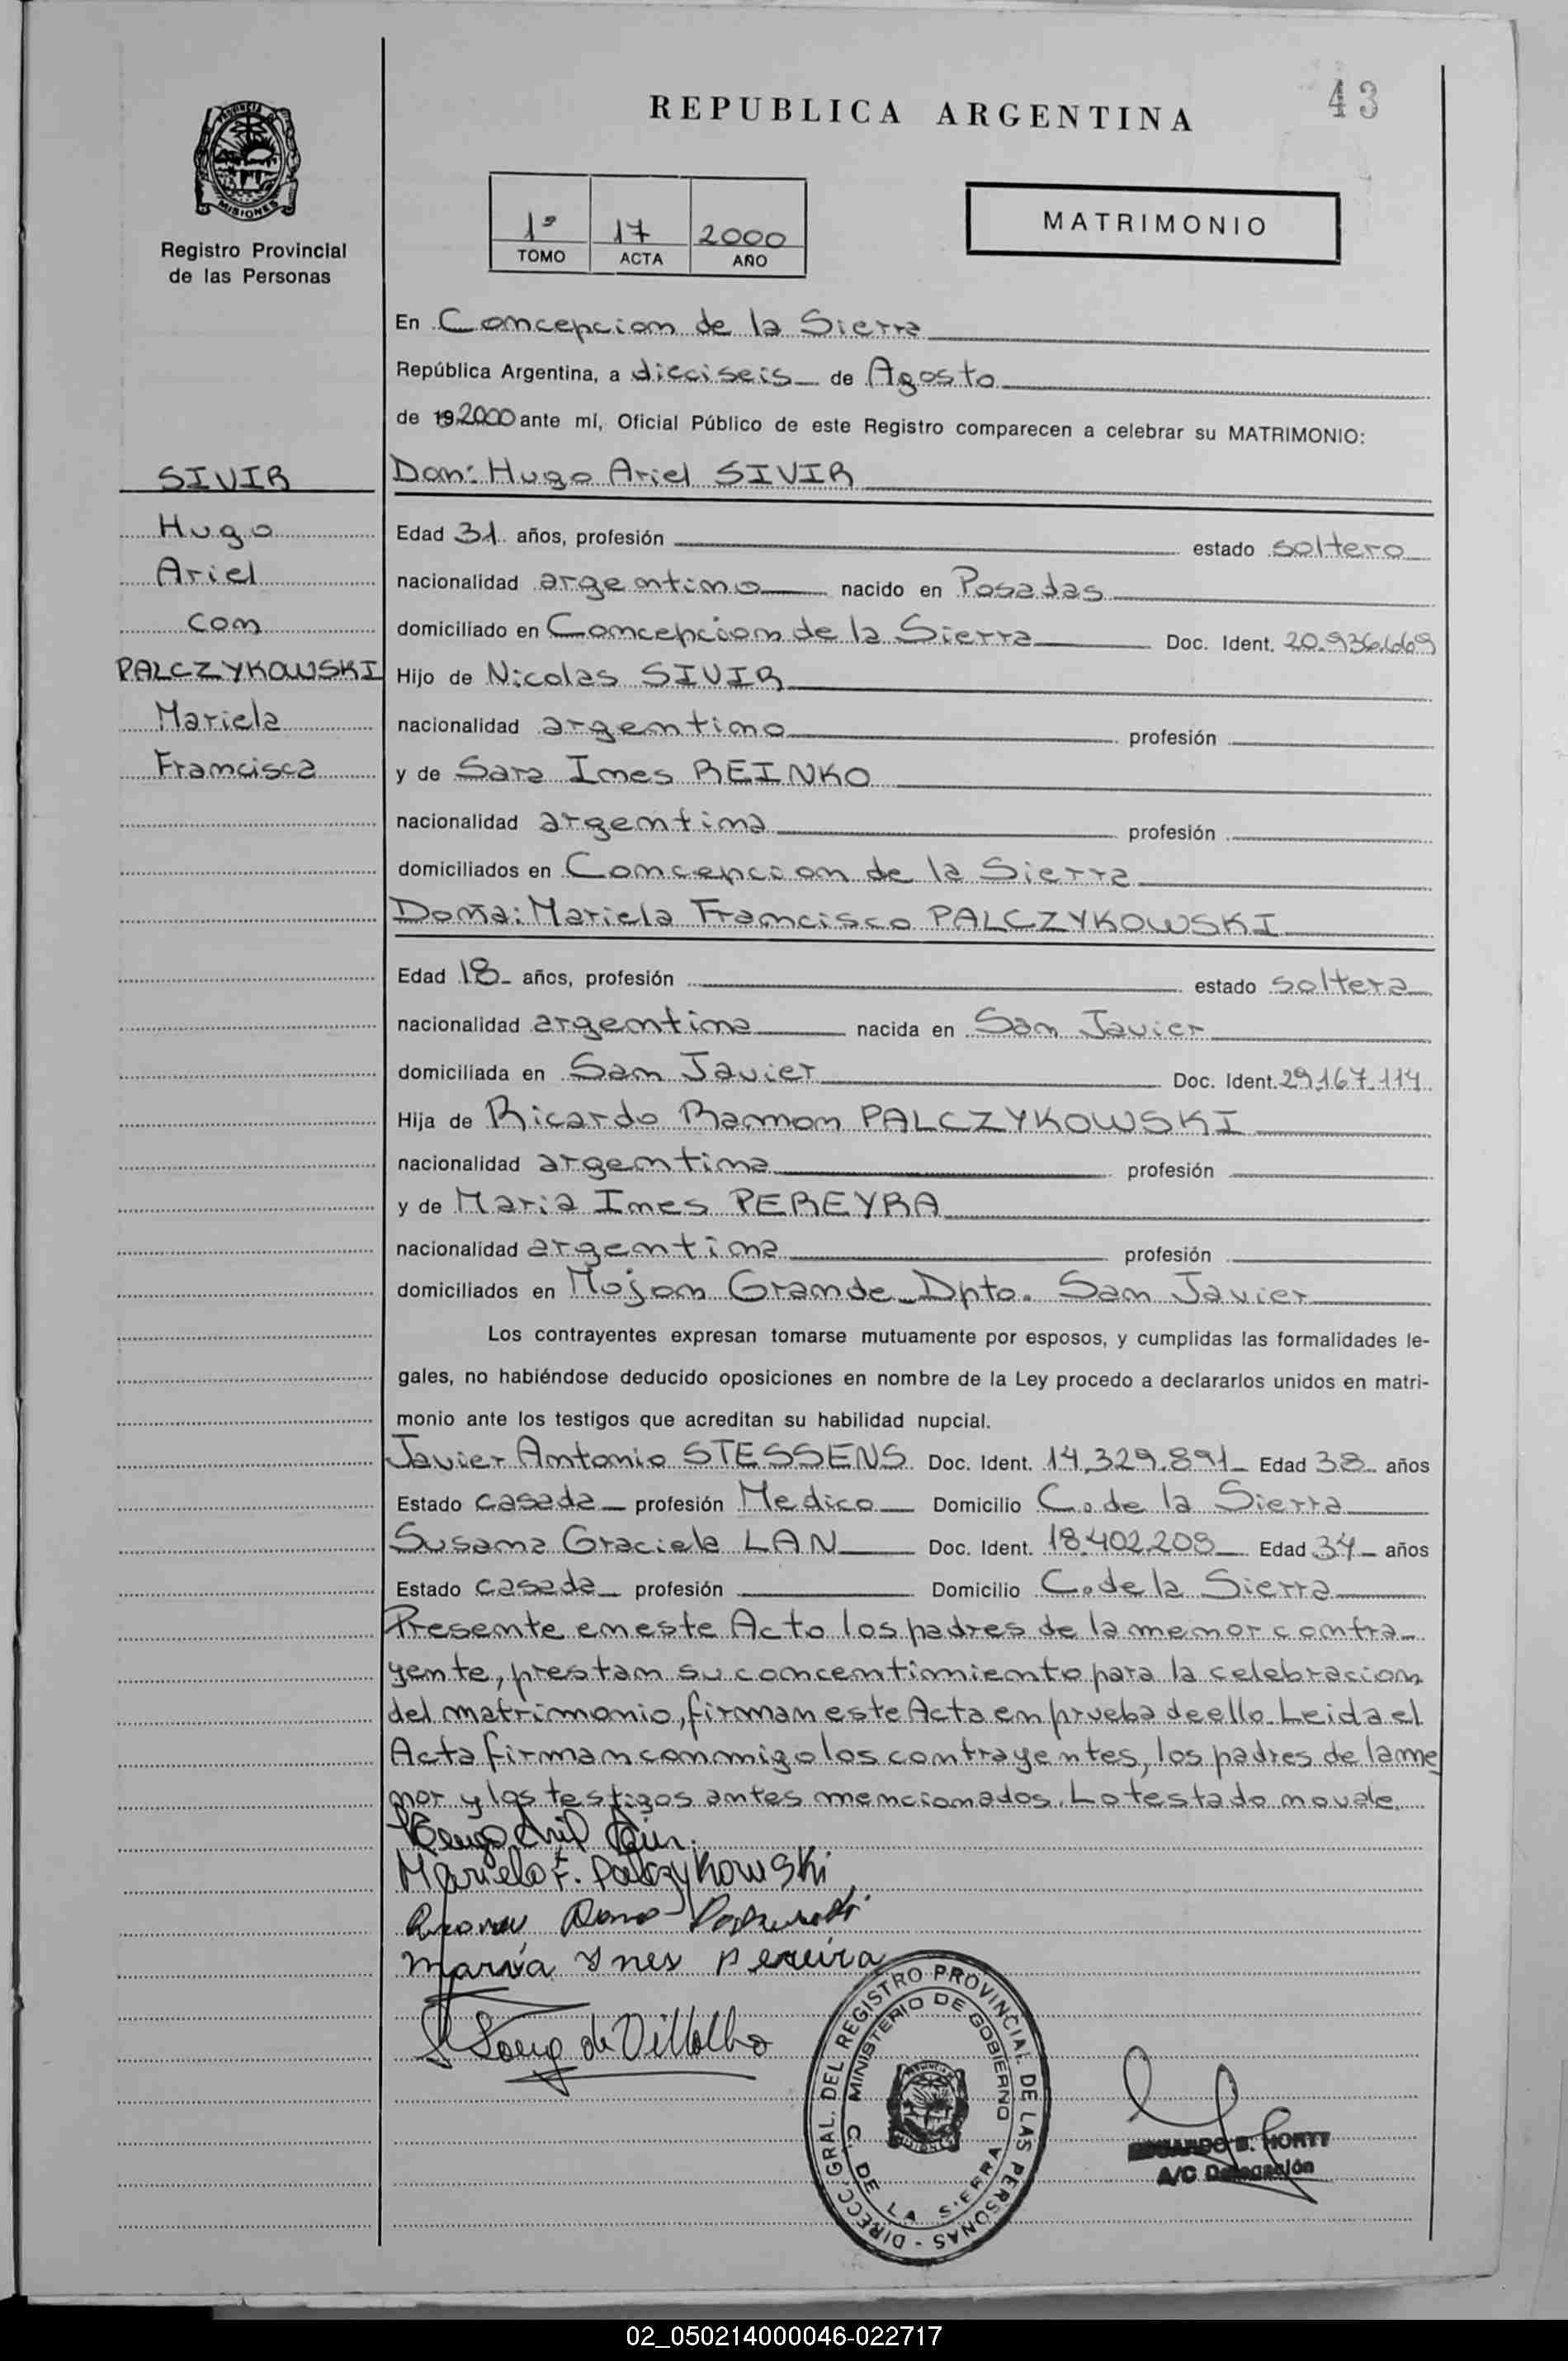 43
REPUBLICA ARGENTINA
PROVINCIA DE
MISIONES
Registro Provincial
de las Personas
MATRIMONIO
1º 17 2000
TOMO ACTA AÑO
En Concepcion de la Sierra
República Argentina, a dieciseis de Agosto
de 19 2000 ante mí, Oficial Público de este Registro comparecen a celebrar su MATRIMONIO:
SIVIR
Hugo
Ariel
con
PALCZYKOWSKI
Mariela
Francisca
Don: Hugo Ariel SIVIR
Edad 31 años, profesión estado soltero
nacionalidad argentino nacido en Posadas
domiciliado en Concepcion de la Sierra Doc. Ident. 20.936.669
Hijo de Nicolas SIVIR
nacionalidad argentino profesión
y de Sara Ines REINKO
nacionalidad argentina profesión
domiciliados en Concepcion de la Sierra
Doña: Mariela Francisco PALCZYKOWSKI
Edad 18 años, profesión estado soltera
nacionalidad argentina nacida en San Javier
domiciliada en San Javier Doc. Ident. 29.167.114
Hija de Ricardo Ramon PALCZYKOWSKI
nacionalidad argentina profesión
y de Maria Ines PEREYRA
nacionalidad argentina profesión
domiciliados en Mojon Grande Dpto. San Javier
Los contrayentes expresan tomarse mutuamente por esposos, y cumplidas las formalidades le-
gales, no habiéndose deducido oposiciones en nombre de la Ley procedo a declararlos unidos en matri-
monio ante los testigos que acreditan su habilidad nupcial.
Javier Antonio STESSENS Doc. Ident. 14.329.891 Edad 38 años
Estado casada profesión Medico Domicilio C. de la Sierra
Susana Graciela LAN Doc. Ident. 18.402.209 Edad 34 años
Estado casada profesión Domicilio C. de la Sierra
Presente en este Acto los padres de la menor contra-
yente, prestan su concentimiento para la celebracion
del matrimonio, firman este Acta en prueba de ello. Leida el
Acta firman conmigo los contrayentes, los padres de la me
nor y los testigos antes mencionados. Lo testado no vale
Mariela F. Palczykowski
María Ynes Pereira
de Villalba
DIRECC. GRAL. DEL REGISTRO PROVINCIAL DE LAS PERSONAS -
MINISTERIO DE GOBIERNO
C. DE LA SIERRA
A/C Delegación
02_050214000046-022717